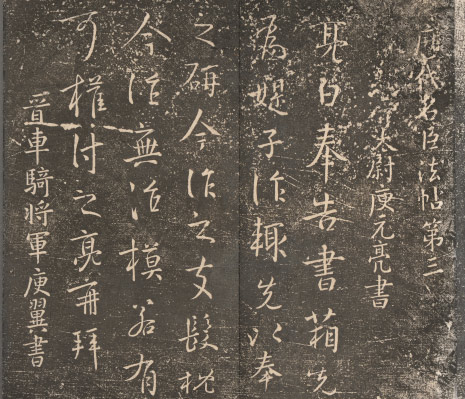 歷代名臣法帖第三
晉太尉庾元亮書
亮白奉告書箱先
為媞子作輒先以奉
之研今作之支髮枕
今作無治模若有
可權付之亮再拜
晉車騎將軍庾翼書